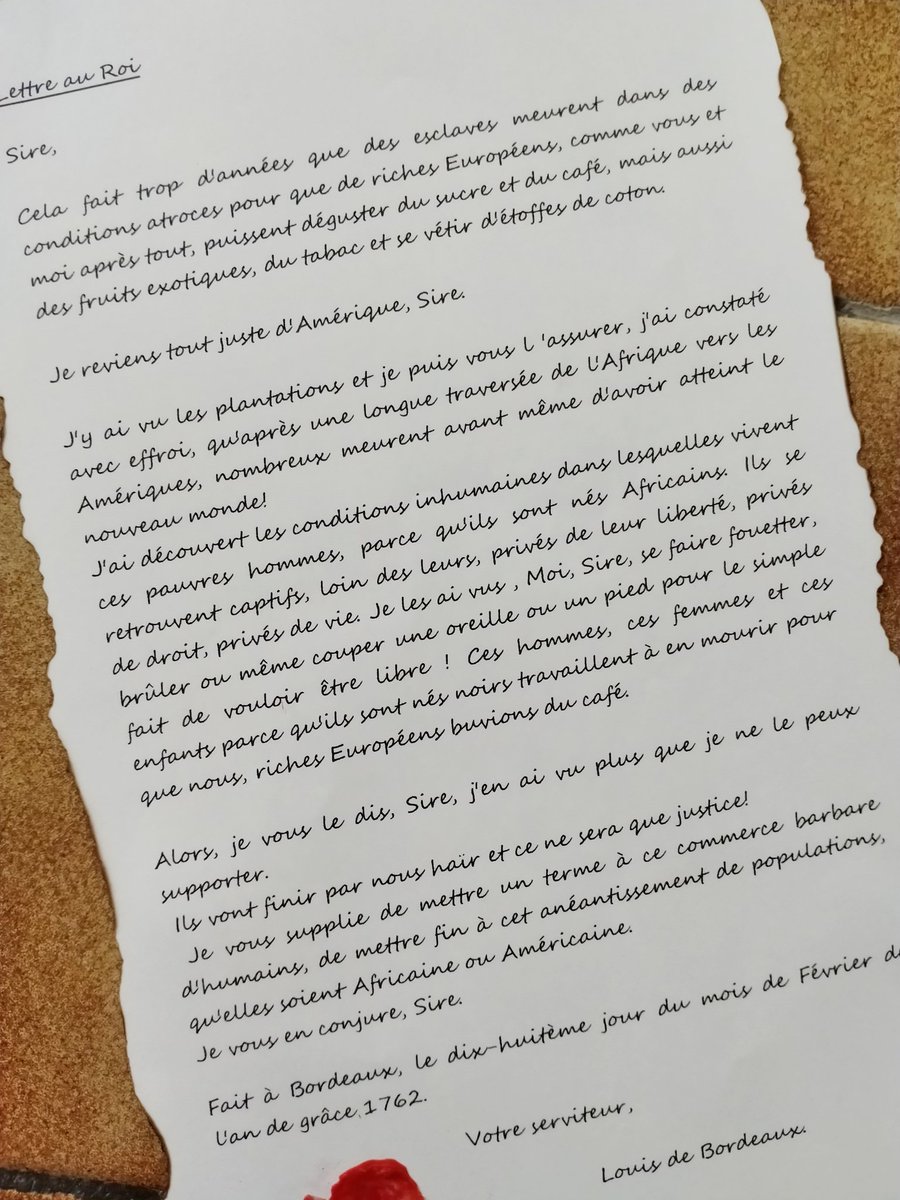 Lettre au Roi
Sire,
Cela fait trop d'années que des esclaves meurent dans des
conditions atroces pour que de riches Européens, comme vous et
moi après tout, puissent déguster du sucre et du café, mais aussi
des fruits exotiques, du tabac et se vétir d'étoffes de coton.
Je reviens tout juste d'Amérique, Sire.
J'y ai vu les plantations et je puis vous l 'assurer, j'ai constaté
avec effroi, qu'après une longue traversée de l'Afrique vers les
Amériques, nombreux meurent avant même d'avoir atteint le
nouveau monde!
J'ai découvert les conditions inhumaines dans lesquelles vivent
ces pauvres hommes, parce qu'ils sont nés Africains. Ils se
retrouvent captifs, loin des leurs, privés de leur liberté, privés
de droit, privés de vie. Je les ai vus , Moi, Sire, se faire fouetter,
brûler ou même couper une oreille ou un pied pour le simple
fait de vouloir être libre ! Ces hommes, ces femmes et ces
enfants parce qu'ils sont nés noirs travaillent à en mourir pour
que nous, riches Européens buvions du café.
Alors, je vous le dis, Sire, j'en ai vu plus que je ne le peux
supporter.
Ils vont finir par nous haïr et ce ne sera que justice!
Je vous supplie de mettre un terme à ce commerce barbare
d'humains, de mettre fin à cet anéantissement de populations,
qu'elles soient Africaine ou Américaine.
Je vous en conjure, Sire.
Fait à Bordeaux, le dix-huitème jour du mois de Février
l'an de grâce 1762.
Votre serviteur,
Louis de Bordeaux.